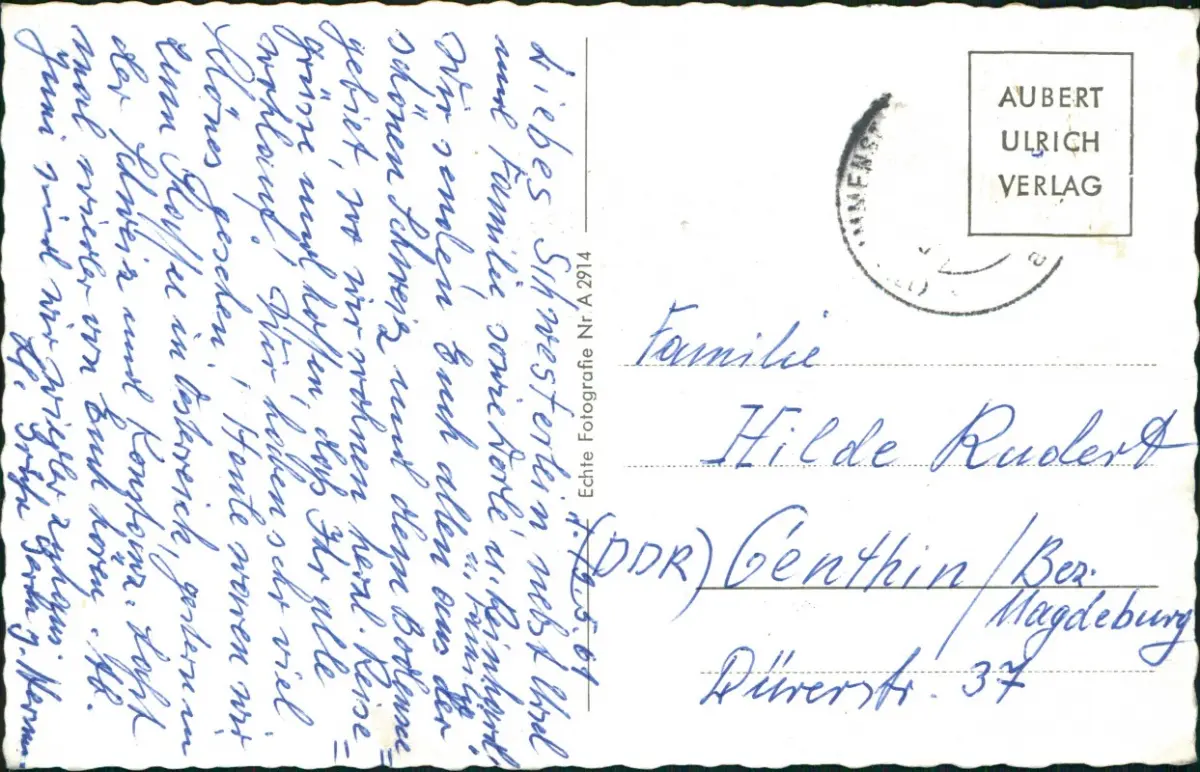 d. 19.5.61
Liebes Schwesterlein nebst Uwd
und Familie, sowie Dorle u. Reinhardt
u. Familie
Wir senden Euch allen aus der
schönen Schweiz und dem Bodensee=
gebiet, wo wir wohnen herzl. Reise=
grüsse und hoffen, daß Ihr alle
wohlauf. Wir haben sehr viel
Schönes gesehen. Heute waren wir
zum Kaffee in Österreich, gestern in
der Schweiz und Konstanz. Laßt
mal wieder von Euch hören. Ab.
Juni sind wir wieder zuhaus.
Hz. Grüße Gerta u. Herm.
Echte Fotografie Nr. A 2914
AUBERT
ULRICH
VERLAG
IMMENS
Familie
Hilde Rudert
(DDR) Genthin / Bez.
Magdeburg
Dürerstr. 37